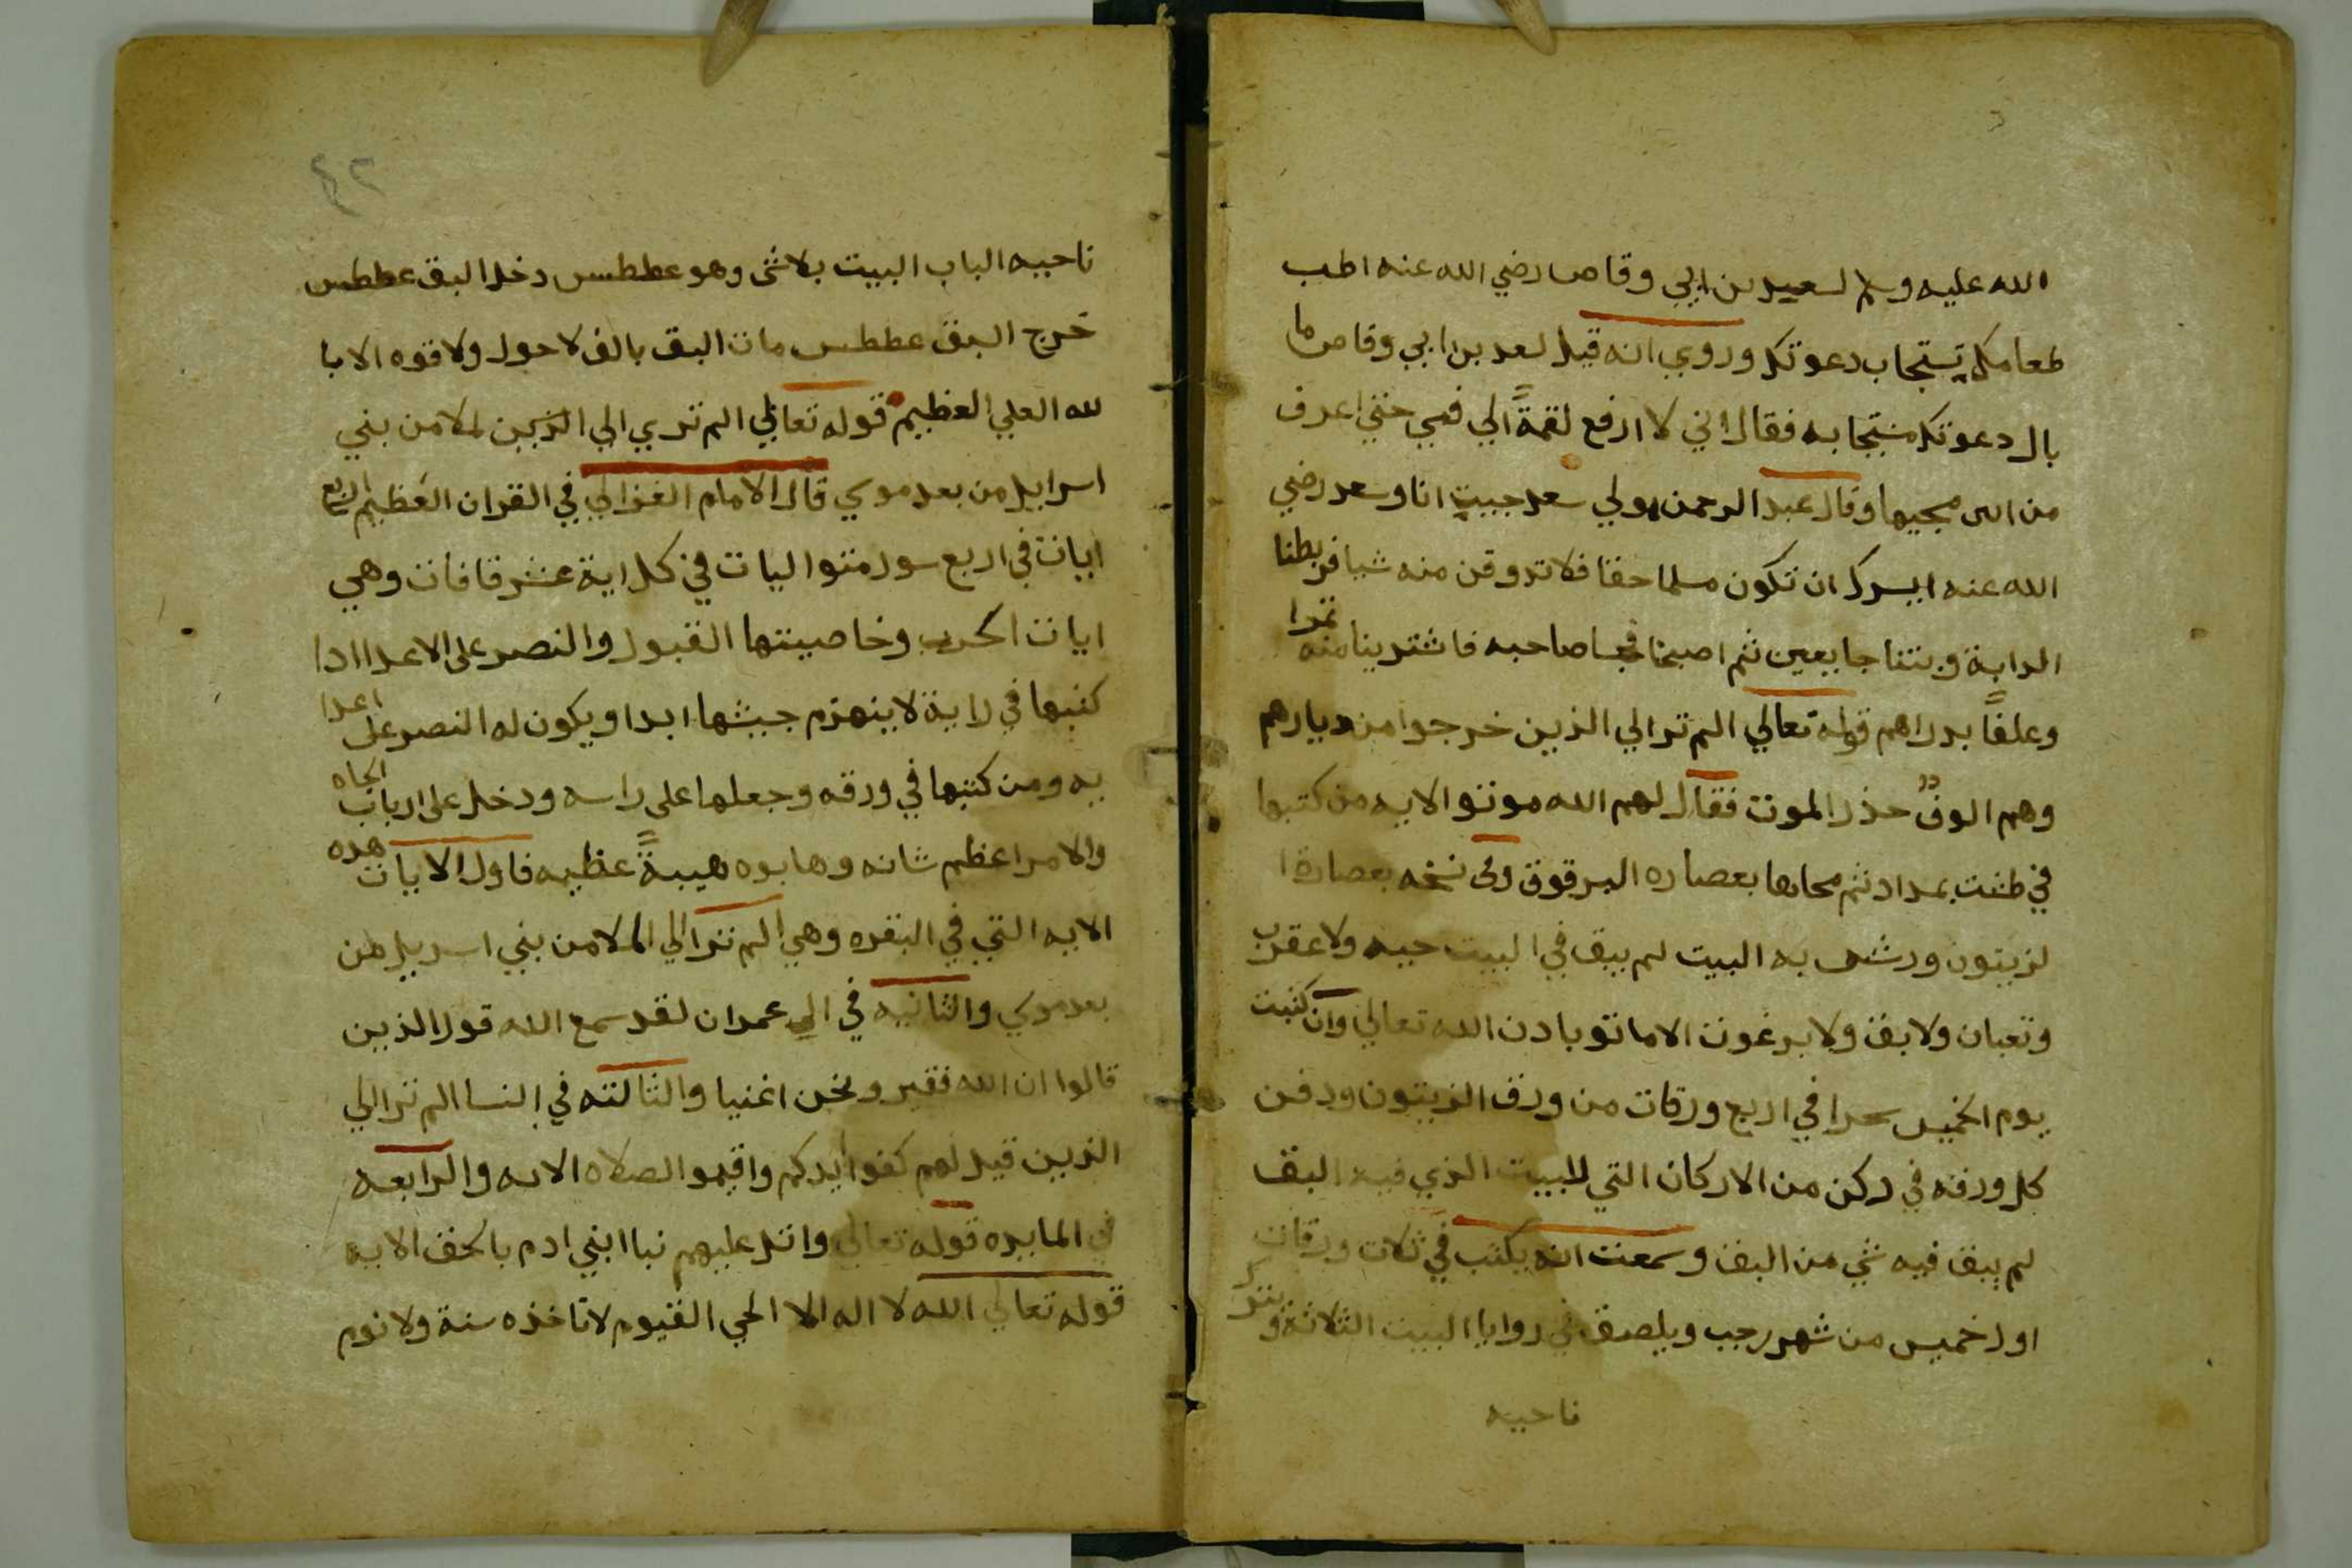 الله عليه وسلم لسعيد بن ابي وقاص رضي الله عنه اطب
طعامك يستجاب دعوتك وروي انه قيل لسعد بن ابي وقاص ما
بال دعوتك مستجابه فقال اني لا ارفع لقمةً الي فمي حتي اعرف
من اين مجيها وقال عبد الرحمن مولي سعد جييت انا وسعد رضي
الله عنه ايسرك ان تكون مسلما حقا فلا تدوقن منه شيا فربطنا
الدابة وبتنا جايعين ثم اصبحنا فجا صاحبه فاشترينا منه تمرا
وعلفًا بدراهم قوله تعالي الم تر الي الذين خرجوا من ديارهم
وهم الوف حذر الموت فقال لهم الله موتو الايه من كتبها
في طشت بمداد ثم محاها بعصاره البرقوق وفي نسخه بعصارة ا
لزيتون ورش به البيت لم يبق في البيت حيه ولا عقرب
وتعبان ولا بق ولا برغوت الا ماتو بادن الله تعالي وان كتبت
يوم الخميس سحرا في اربع ورقات من ورق الزيتون ودفن
كل ورقه في ركن من الاركان التي للبيت الذي فيه البق
لم يبق فيه شي من البق وسمعت انه يكتب في ثلات ورقات
اول خميس من شهر رجب ويلصق في زوايا البيت الثلاثة ويترك
ناحيه
٤٢
ناحييه الباب البيت بلاشى وهو عططس دخل البق عططس
خرج البق عططس مات البق بالف لا حول ولا قوه الا با
لله العلي العظيم قوله تعالي الم تري الي الذين لملا من بني
اسرايل من بعد موسي قال الامام الغزالي في القران العظيم اربع
ايات في اربع سور متواليات في كل اية عشر قافات وهي
ايات الحرب وخاصيتها القبول والنصر على الاعدا ادا
كتبها في راية لا ينهزم جيشها ابدا ويكون له النصر على اعدا
يه ومن كتبها في ورقه وجعلها على راسه ودخل على ارباب الجاه
والامرا عظم شانه وهابوه هيبةً عظيمه فاول الايات هده
الايه التي في البقره وهي الم تر الي الملا من بني اسريل من
بعد موسي والثانيه في الي عمران لقد سمع الله قول الذين
قالوا ان الله فقير ونحن اغنيا والثالثه في النسا الم تر الي
الذين قيل لهم كفوا ايدكم واقيمو الصلاه الايه والرابعه
في المايده قوله تعالي واتل عليهم نبا ابني ادم بالحق الايه
قوله تعالي الله لا اله الا الحي القيوم لا تاخذه سنة ولا نوم